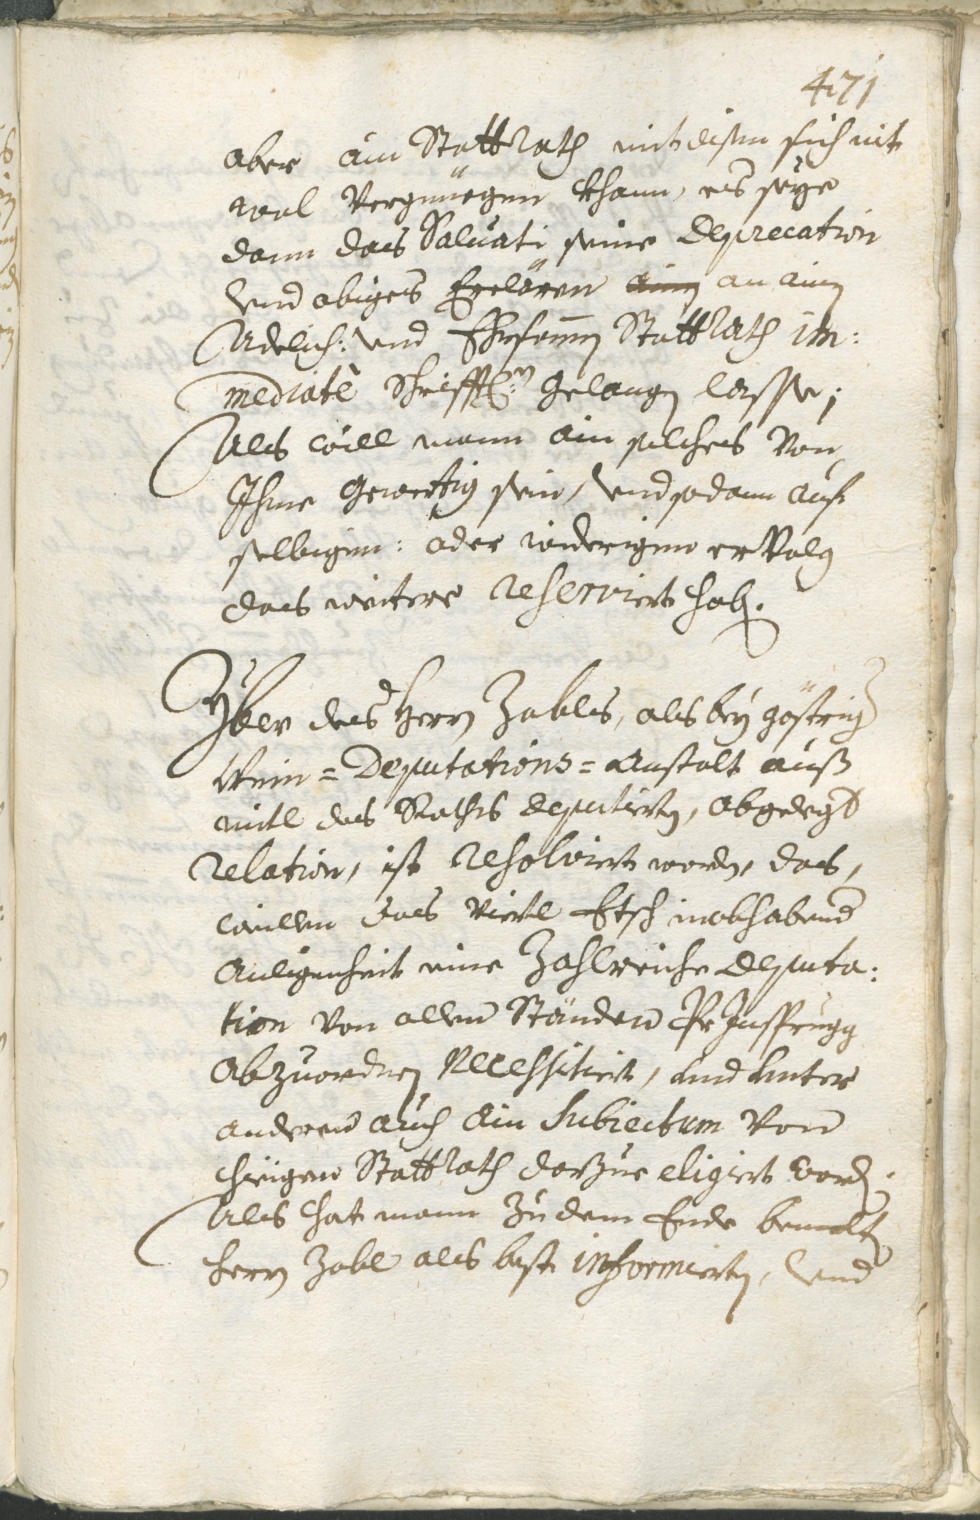 471
aber ain Stattrath mit disem sich nit
wol vergnüegen khann, es seye
dann das Saluati seine Deprecation
vnd obiges Erclären ainen an ainen
Adelich: vnd Ehrsamen Stattrath im:
mediatè schrifftl: gelangen lasse;
Als will mann ain solches von
Ihme gewertig sein, vnd sodann auf
selbigen: oder widerigen ervolg
das weitere reserviert haben.
Yber des Herrn Zobls, als bey göstrig
Wein=Deputations=Anstalt auß
mitl des Raths deputierten, abgelegt
relation, ist resolviert worden, das,
weillen das Viertl Etsch inobhabend
Anligenheit eine Zahlreiche Deputa:
tion von allen Ständen Per Insprugg
abzuordnen necessitiert, vnd unter
anderen auch Ain Subiectum von
hiesigen Stattrath darzue eligiert word.
Als hat mann zu dem Ende bemelten
Herrn Zobl als best informierten, vnd